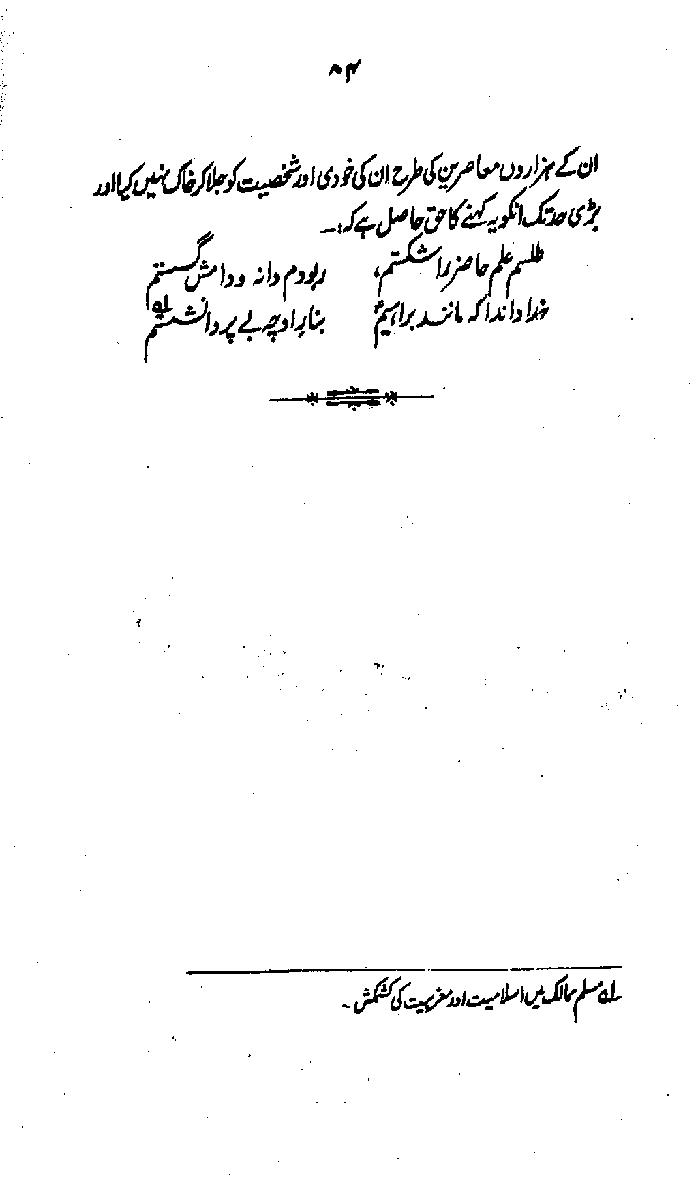 ۸۴
ان کے ہزاروں معاصرین کی طرح ان کی خودی اور شخصیت کو جلا کر خاک نہیں کیا اور
بڑی حد تک انکو یہ کہنے کا حق حاصل ہے کہ:۔
طلسم علم حاضر را شکستم، ربودم دانہ و دامش گسستم
خدا داند کہ مانند براہیمؑ بنار او چہ بے پروا نشستم لہ
لہ مسلم ممالک میں اسلامیت اور مغربیت کی کشمکش ۔